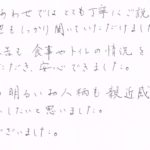 あわせでは とても丁寧にご説
もしっかり聞いていただけました
も 食事やトイレの情況を
ただき、安心できました。
の明るいお人柄も親近感
したいと思いました。
ございました。